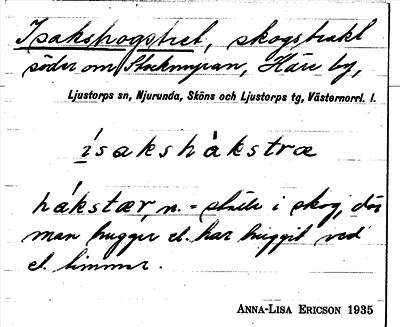 Isakshogstret, skogstrakt
söder om Stockmyran, Häre by,
Ljustorps sn, Njurunda, Sköns och Ljustorps tg, Västernorrl. l.
ísakshákstræ
hákstær, n. = ställe i skog, där
man hugger el. har huggit ved
el. timmer.
ANNA-LISA ERICSON 1935